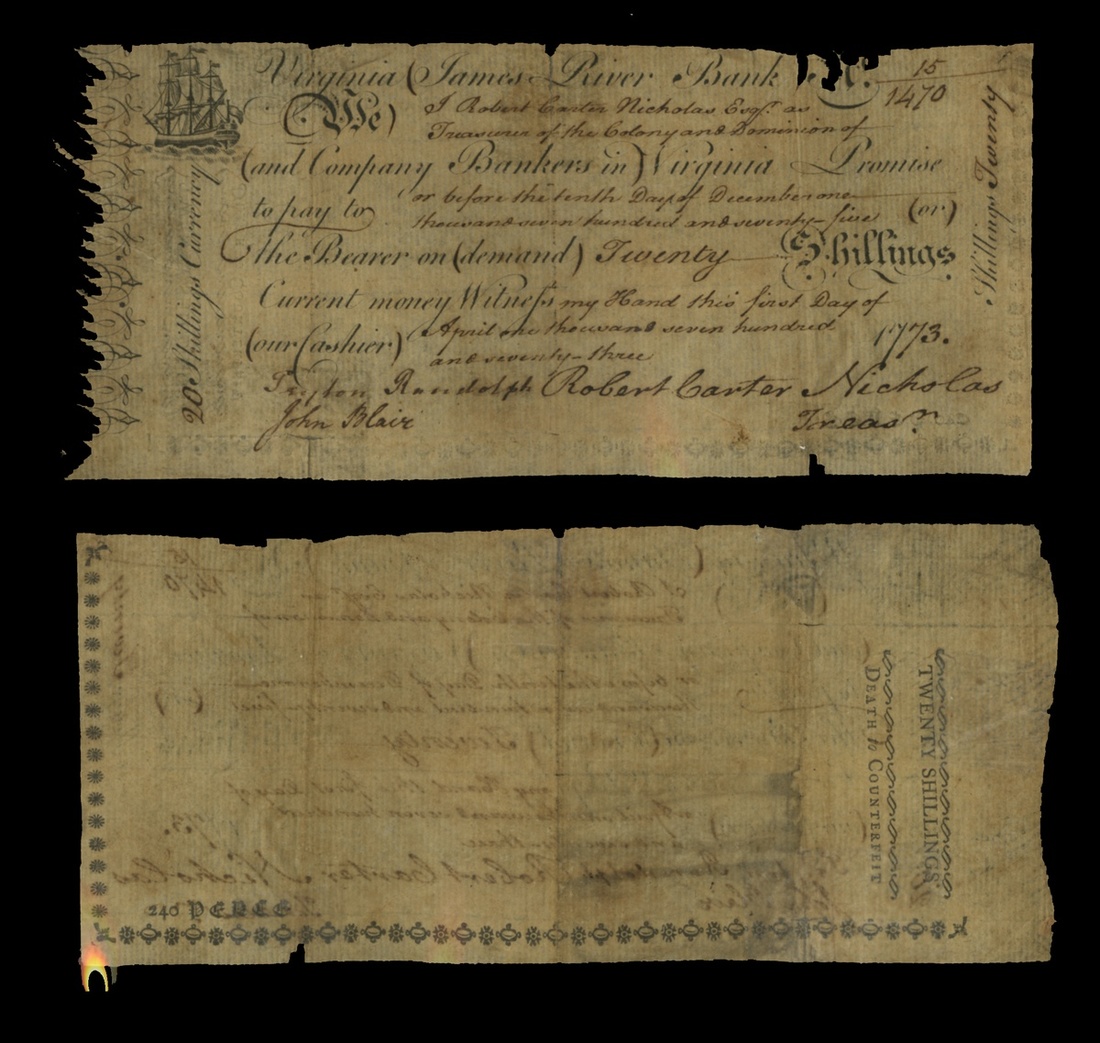 Virginia (James River Bank) No. 15
1470
(We) I Robert Carter Nicholas Esqr. as
Treasurer of the Colony and Dominion of
(and Company Bankers in) Virginia Promise
to pay to or before the tenth Day of December one
thousand seven hundred and seventy-five (or)
the Bearer on (demand) Twenty Shillings
Current money Witness my Hand this first Day of
(our Cashier) April one thousand seven hundred 1773.
and seventy-three
Peyton Randolph Robert Carter Nicholas
John Blair Treasr.
20 Shillings Currency
Shillings Twenty
TWENTY SHILLINGS
DEATH to COUNTERFEIT
240 PENCE